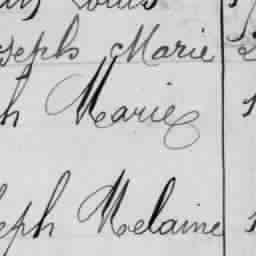 Louis
Joseph Marie
Marie
Joseph Melaine